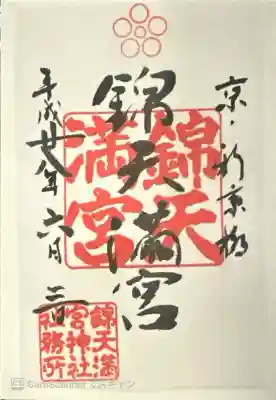 京・新京極
錦天満宮
平成廿八年六月三日
錦天
満宮
錦天満
宮神社
社務所
CamScanner でスキャン